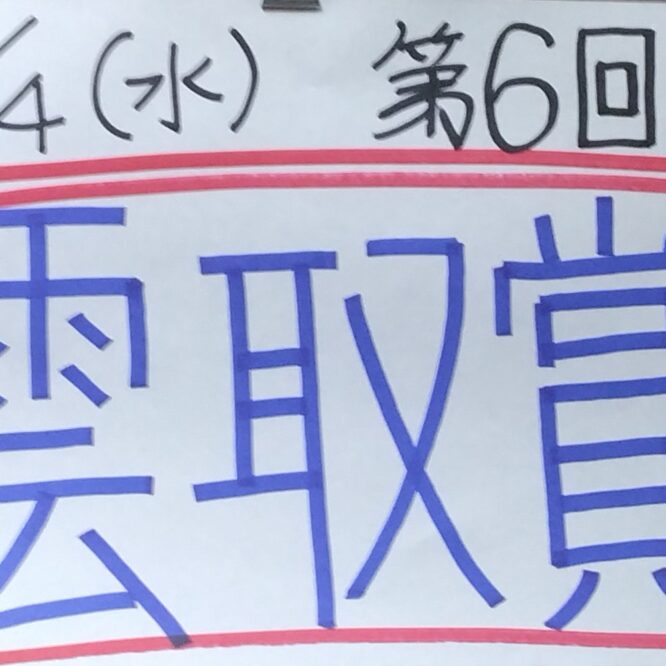 /4(水) 第6回
雲取賞